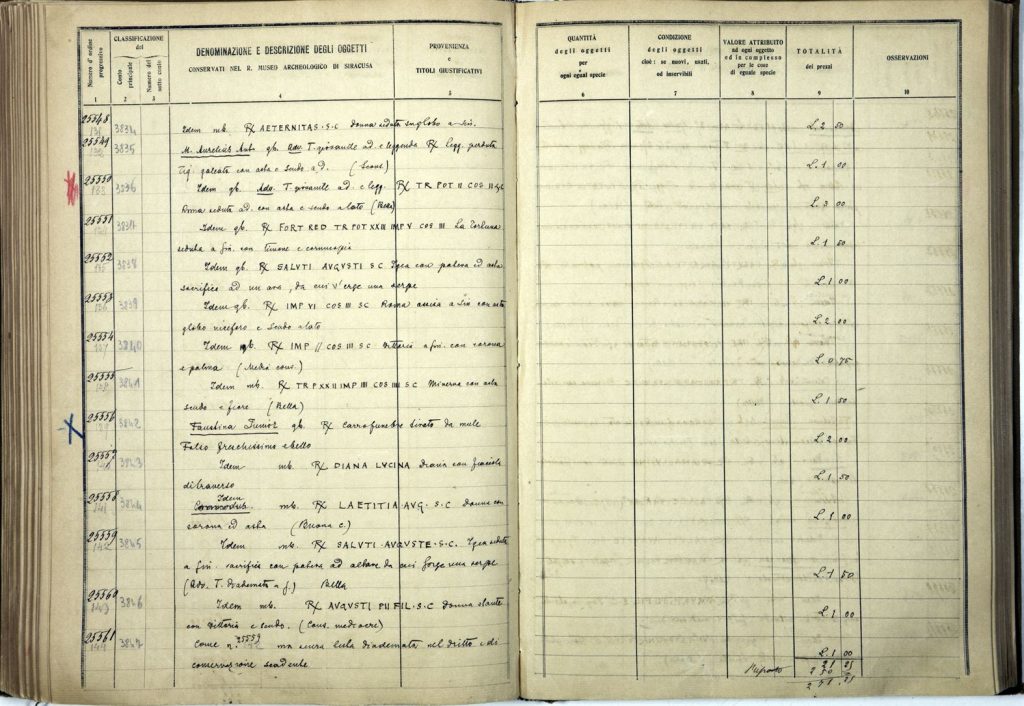 Numero d'ordine progressivo
CLASSIFICAZIONE del
Conto principale
Numero del sotto conto
DENOMINAZIONE E DESCRIZIONE DEGLI OGGETTI
CONSERVATI NEL R. MUSEO ARCHEOLOGICO DI SIRACUSA
PROVENIENZA
e
TITOLI GIUSTIFICATIVI
QUANTITÀ
degli oggetti
per
ogni egual specie
CONDIZIONE
degli oggetti
cioè: se nuovi, usati,
od inservibili
VALORE ATTRIBUITO
ad ogni oggetto
ed in complesso
per le cose
di eguale specie
TOTALITÀ
dei prezzi
OSSERVAZIONI
1 2 3 4 5 6 7 8 9 10
25548
131 3834 Idem mb. ℞ AETERNITAS·S·C donna seduta su globo a sin. L. 2 50
25549
132 3835 M. Aurelius Ant. gb. Adv. T. giovanile ad. e leggenda ℞ legg. perduta
fig. galeata con asta e scudo a d. (Scons.) L. 1 00
25550
133 3836 Idem gb. Adv. T. giovanile ad. e legg. ℞ TR POT II COS II S C
Roma seduta ad. con asta e scudo a lato (Bello) L. 3 00
25551
3837 Idem gb. ℞ FORT RED TR POT XXII IMP V COS III La Fortuna
seduta a sin. con timone e cornucopia L. 1 50
25552
135 3838 Idem gb. ℞ SALUTI AUGUSTI S C Igea con patera ed asta
sacrifica ad un ara, da cui s'erge una serpe L. 1 00
25553
136 3839 Idem gb. ℞ IMP VI COS III SC Roma assisa a sin con asta
globo niceforo e scudo a lato L. 2 00
25554
137 3840 Idem gb. ℞ IMP // COS III SC Vittoria a sin. con corona
e palma (Medio cons.) L. 0 75
25555
138 3841 Idem mb. ℞ TR P XXII IMP III COS III SC Minerva con asta
scudo e fiore (Bella) L. 1 50
25556
3842 Faustina Junior gb. ℞ Carro funebre tirato da mule
Falso freschissimo e bello L. 2 00
25557
3843 Idem mb. ℞ DIANA LUCINA Diana con fiaccola
di traverso L. 1 50
25558
141 3844 Idem
Commodus. mb. ℞ LAETITIA AUG. S·C donna con
corona ed asta (Buona c.) L. 1 00
25559
142 3845 Idem mb. ℞ SALUTI·AUGUSTE·S·C. Igea seduta
a sin. sacrifica con patera ad altare da cui sorge una serpe
(Adv. T. diademata a s.) Bella L. 1 50
25560
143 3846 Idem mb. ℞ AUGUSTI PII FIL·S·C donna stante
con Vittoria e scudo. (Cons. mediocre) L. 1 00
25561
144 3847 Come n.° 25559 ma senza testa diademata nel dritto e di
conservazione scadente L. 1 00
21 25
Riporto